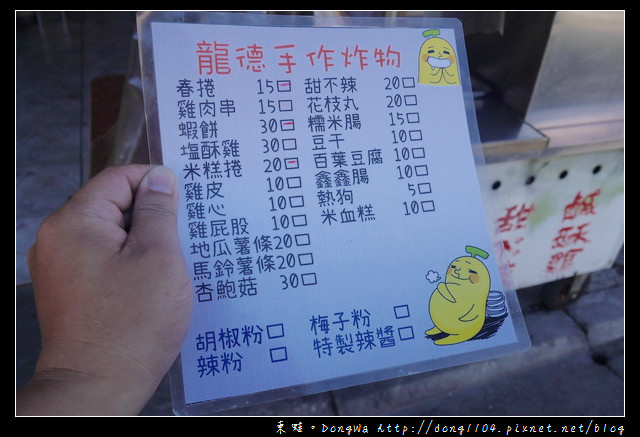 龍德手作炸物
春捲 15
雞肉串 15
蝦餅 30
塩酥雞 30
米糕捲 20
雞皮 10
雞心 10
雞屁股 10
地瓜薯條20
馬鈴薯條20
杏鮑菇 30
甜不辣 20
花枝丸 20
糯米腸 15
豆干 10
百葉豆腐 10
鑫鑫腸 10
熱狗 5
米血糕 10
胡椒粉
辣粉
梅子粉
特製辣醬
鹹酥雞
甜不
東畦。Dongwa http://dong1104.pixnet.net/blog